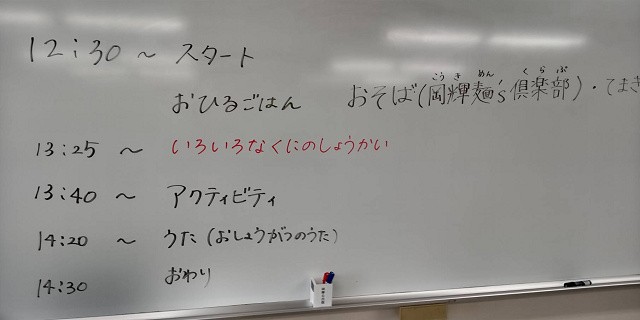 12:30 ～ スタート
おひるごはん おそば(岡輝麺's倶楽部)・てまき
こうきめん くらぶ
13:25 ～ いろいろなくにのしょうかい
13:40 ～ アクティビティ
14:20 ～ うた(おしょうがつのうた)
14:30 おわり